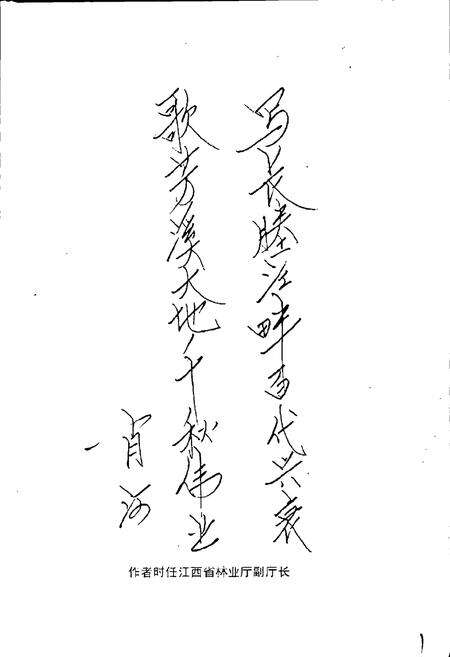 写长塍江畔百代兴衰
歌芳溪大地千秋伟业
肖河
作者时任江西省林业厅副厅长